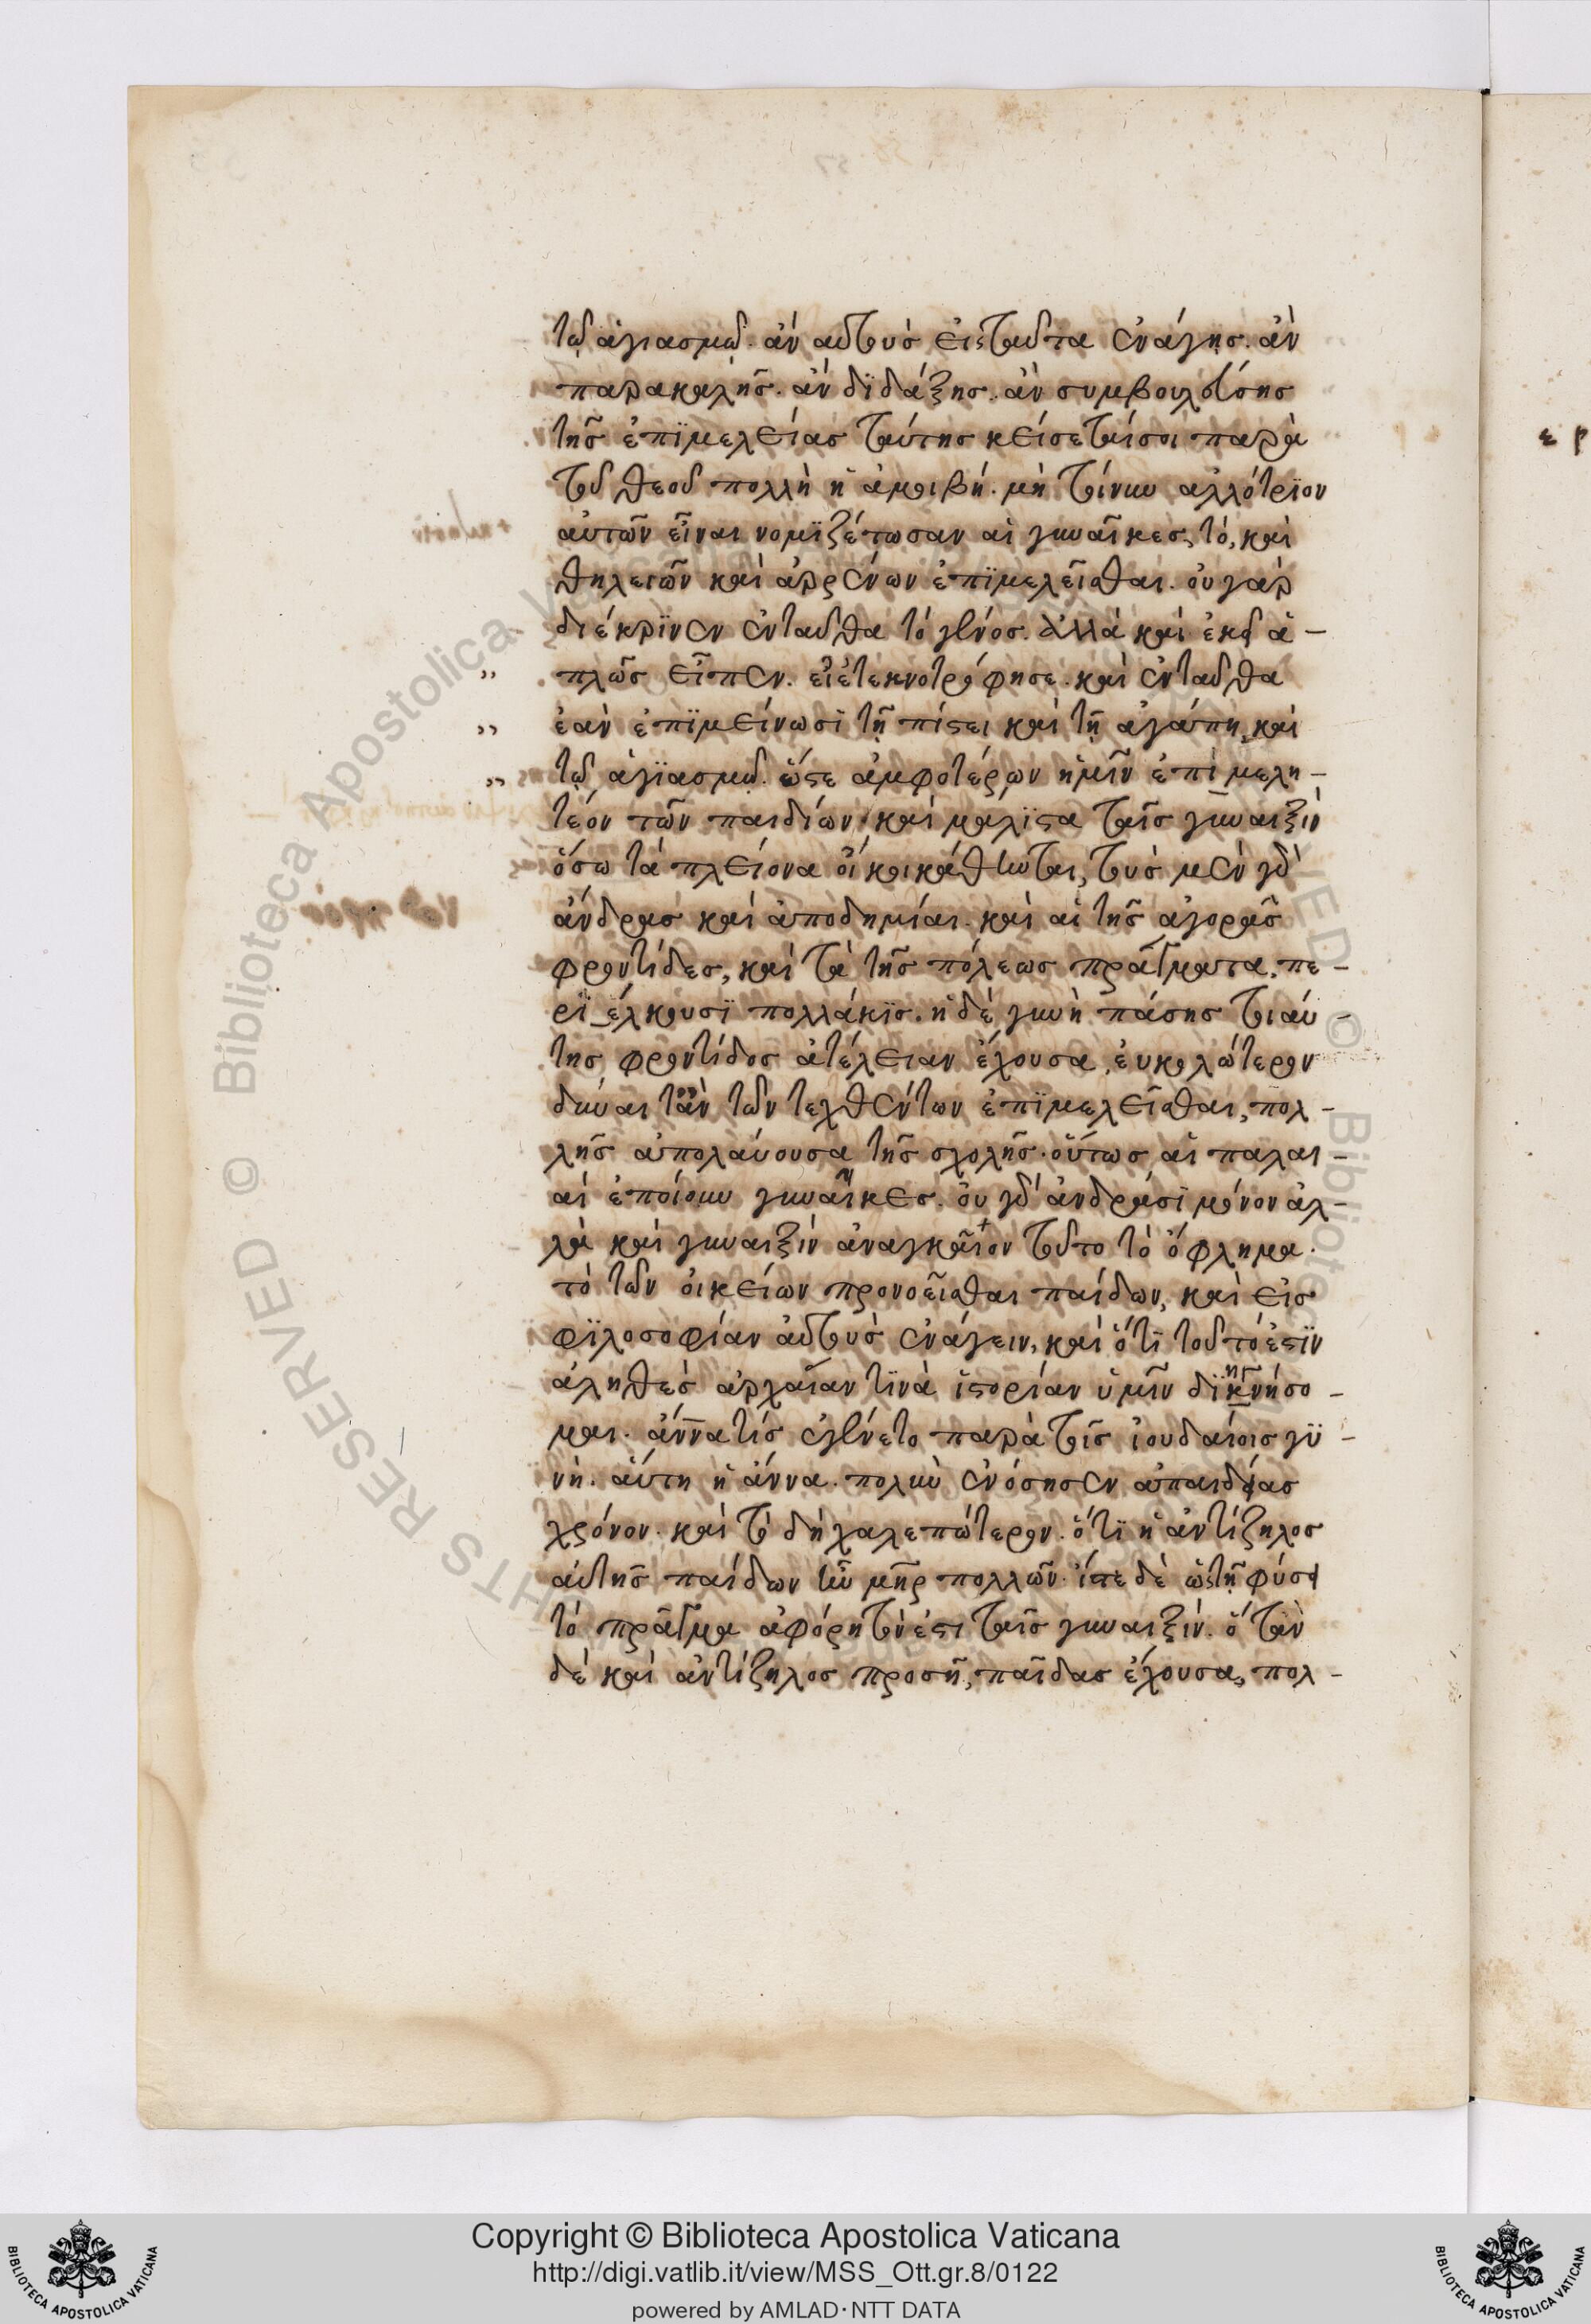 τῶ ἁγιασμῶ. ἂν αὐτοὺς εἰς ταῦτα ἐνάγης. ἂν
παρακαλῆς. ἂν διδάξης. ἂν συμβουλεύσης
τῆς ἐπιμελείας ταύτης κείσεταί σοι παρὰ
τοῦ θεοῦ πολλὴ ἡ ἀμοιβή. μὴ τοίνυν ἀλλότριον
αὐτῶν εἶναι νομιζέτωσαν αἱ γυναῖκες, τό, καὶ
θηλειῶν καὶ ἀρρένων ἐπιμελεῖσθαι. οὐ γὰρ
διέκρινεν ἐνταῦθα τὸ γένος. ἀλλὰ καὶ ἐκεῖ ἁ-
πλῶς εἶπεν. εἰ ἐτεκνοτρόφησε. καὶ ἐνταῦθα
ἐὰν ἐπιμείνωσι τῆ πίστει καὶ τῆ ἀγάπη, καὶ
τῶ ἁγιασμῶ. ὥστε ἀμφοτέρων ἡμῖν ἐπιμελη-
τέον τῶν παιδίων. καὶ μάλιστα ταῖς γυναιξὶν
ὅσω τὰ πλείονα οἴκοι κάθηνται, τοὺς μὲν γὰρ
ἄνδρας καὶ ἀποδημίαι. καὶ αἱ τῆς ἀγορᾶς
φροντίδες, καὶ τὰ τῆς πόλεως πράγματα, πε-
ριέλκουσι πολλάκις. ἡ δὲ γυνὴ πάσης τοιαύ-
της φροντίδος ἀτέλειαν ἔχουσα, εὐκολώτερον
δύναιτ' ἂν τῶν τεχθέντων ἐπιμελεῖσθαι, πολ-
λῆς ἀπολαύουσα τῆς σχολῆς. οὕτως αἱ παλαι-
αὶ ἐποίουν γυναῖκες. οὐ γὰρ ἀνδράσι μόνον ἀλ-
λὰ καὶ γυναιξὶν ἀναγκαῖον τοῦτο τὸ ὄφλημα.
τὸ τῶν οἰκείων προνοεῖσθαι παίδων, καὶ εἰς
φιλοσοφίαν αὐτοὺς ἐνάγειν, καὶ ὅτι τοῦτό ἐστιν
ἀληθὲς ἀρχαῖαν τινὰ ἱστορίαν ὑμῖν διηγήσο-
μαι. ἄννα τὶς ἐγένετο παρὰ τοῖς ἰουδαίοις γυ-
νή. αὕτη ἡ ἄννα. πολὺν ἐνόσησεν ἀπαιδείας
χρόνον. καὶ τὸ δὴ χαλεπώτερον. ὅτι ἡ ἀντίζηλος
αὐτῆς παίδων ἦν μῆρ πολλῶν. ἴστε δὲ ὡς τῆ φύσει
τὸ πρᾶγμα ἀφόρητόν ἐστι ταῖς γυναιξίν. ὅταν
δὲ καὶ ἀντίζηλος προσῆ, παῖδας ἔχουσα, πολ-
ε ρ
Copyright © Biblioteca Apostolica Vaticana
http://digi.vatlib.it/view/MSS_Ott.gr.8/0122
powered by AMLAD·NTT DATA